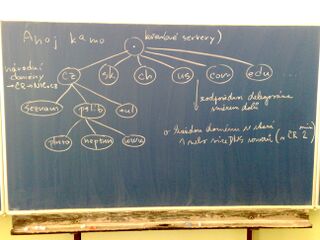 Ahoj kamo
kořenové servery)
národní
domény
→ ČR → NIC.cz
cz sk ch us com edu ...
seznam pslib
zodpovědnost delegována
směrem dolů
pluto neptun
o každou doménu se stará
1 nebo více DNS serverů (v ČR min 2)